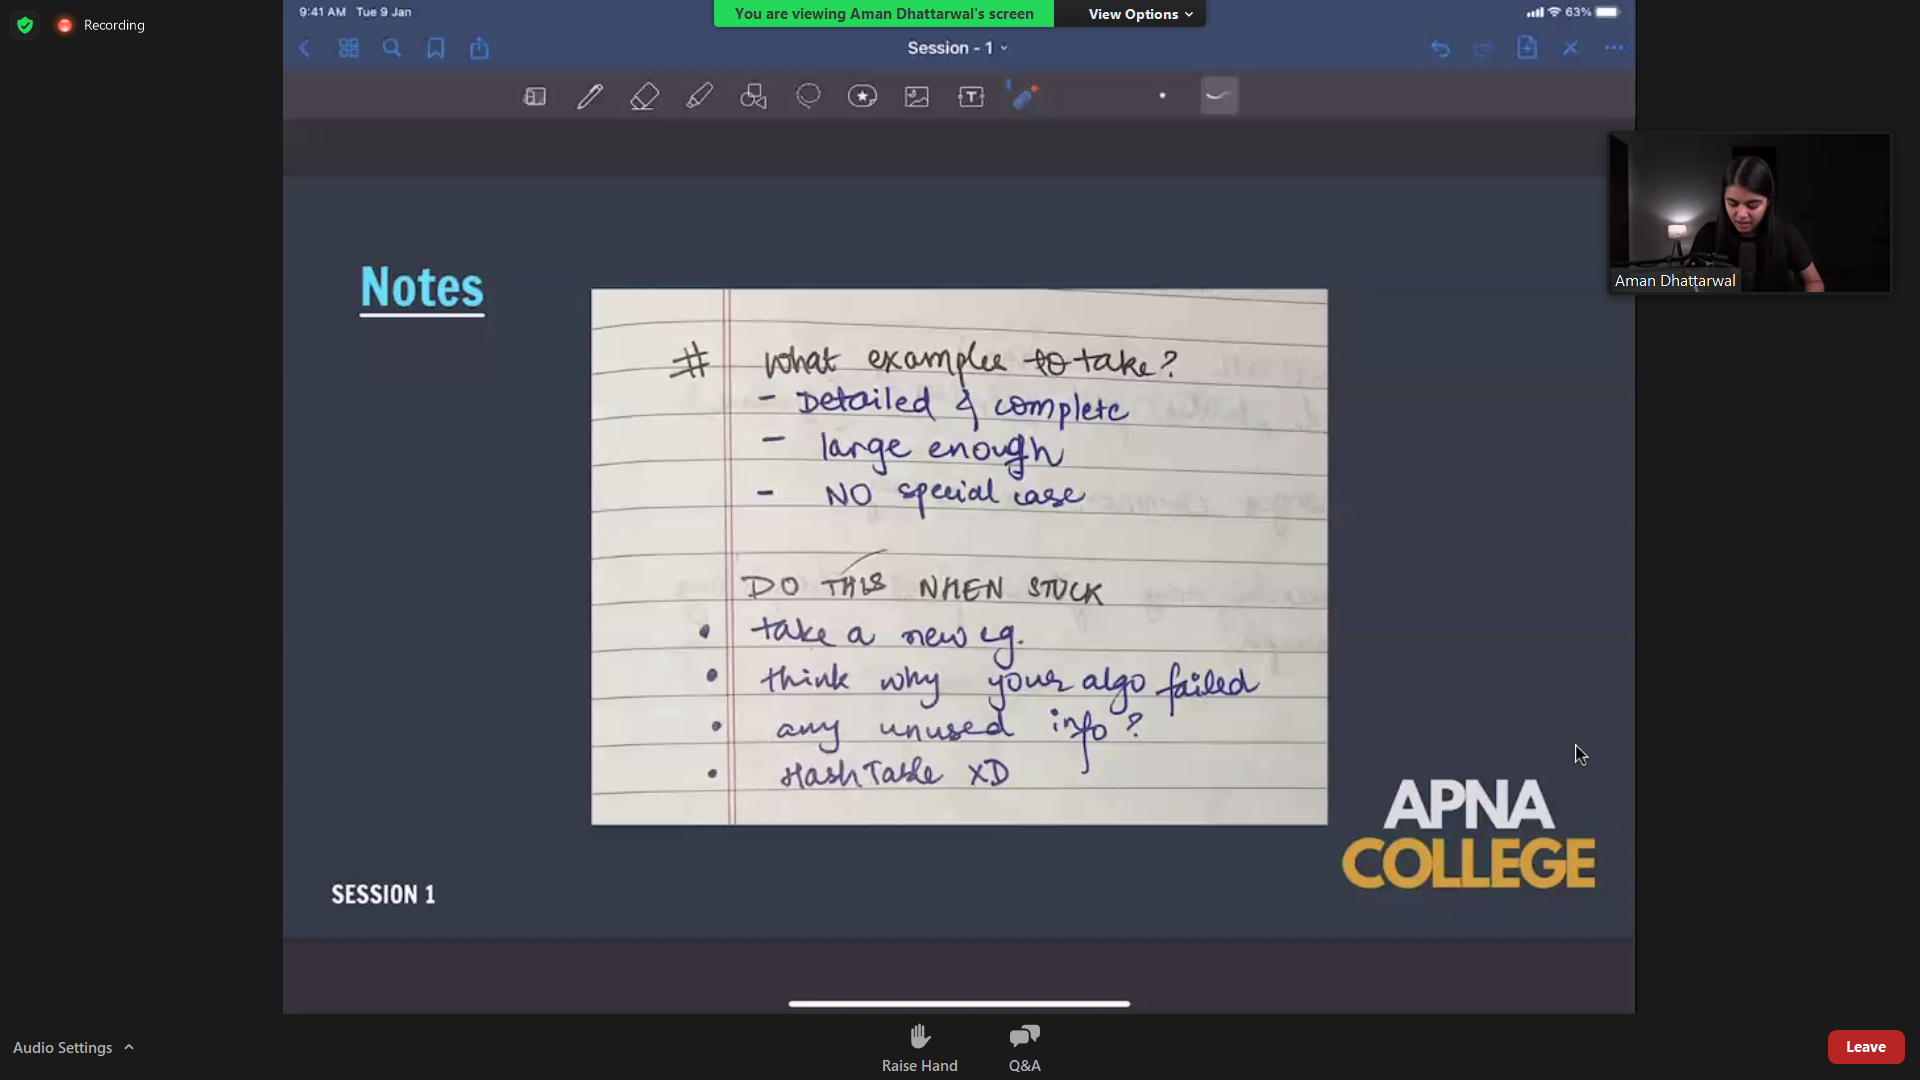 Recording
9:41 AM Tue 9 Jan
You are viewing Aman Dhattarwal's screen
View Options
63%
Session - 1
T
Aman Dhattarwal
Notes
# What examples to take?
- Detailed & complete
- large enough
- NO special case
DO THIS WHEN STUCK
• take a new eg.
• think why your algo failed
• any unused info?
• HashTable XD
APNA
COLLEGE
SESSION 1
Audio Settings
Raise Hand
Q&A
Leave